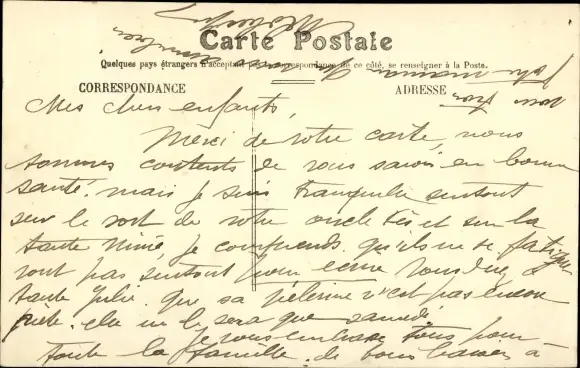 Carte Postale
Quelques pays étrangers n'acceptant pas la correspondance de ce côté, se renseigner à la Poste.
CORRESPONDANCE
ADRESSE
Mes chers enfants,
Merci de votre carte, nous
sommes contents de vous savoir en bonne
santé. mais je suis tranquille surtout
sur le sort de votre oncle et sur la
tante Mimi, je comprends qu'ils ne se fatigue
ront pas surtout pour écrire
tante Julie que sa pèlerine n'est pas encore
prête. elle ne le sera que samedi
je vous embrasse tous pour
toute la famille. de bons baisers à
votre
maman